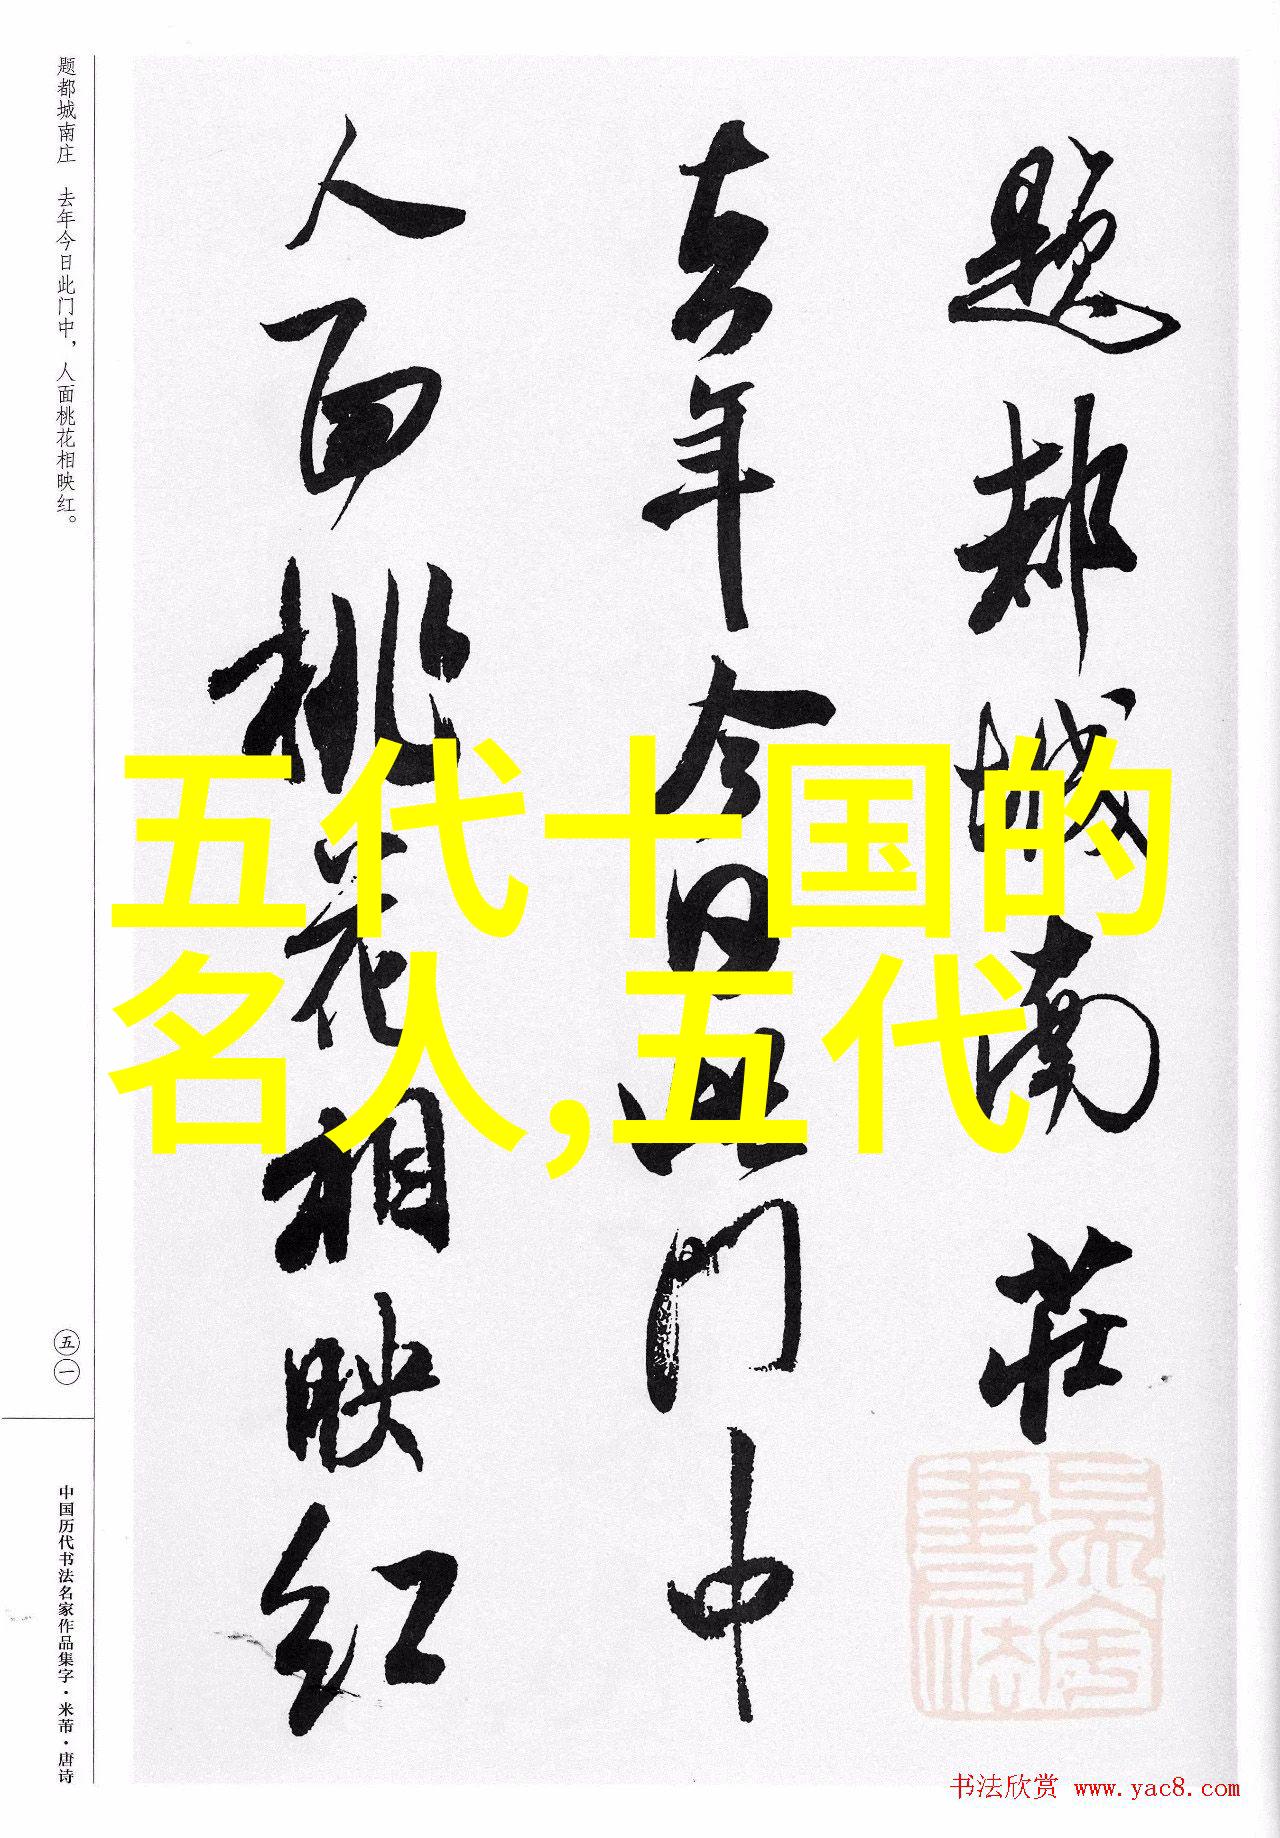 题都城南莊
去年今日此门中
人面桃花相映红
五代十国的
名人,五代
题都城南庄 去年今日此门中，人面桃花相映红。
五一
中国历代书法名家作品集字·米芾·唐诗
书法欣赏 www.yac8.com